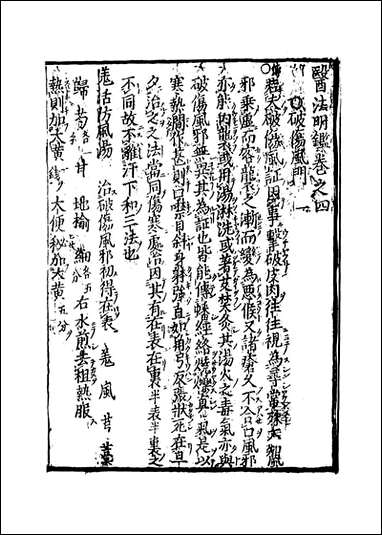 醫法明鑑卷之四
○破傷風門 一
○蓋夫破傷風証因事擊破皮肉往往視為尋常殊不知風
邪乘虛而客襲之漸而變為惡候又諸瘡久不合口風邪
亦能內襲或用湯淋洗或著艾焚灸其湯火之毒氣亦與
破傷風邪無異其為証也皆能傳播經絡燔爍真氣是以
寒熱間作甚則口噤目斜身躰強直如角弓反張狀死在旦
夕治之之法當同傷寒處治因其有在表在裏半表半裏之
不同故不離汗下和三法也
羌活防風湯 治破傷風邪初得在表 羌 風 芎 藁
歸 芍 各一 甘 地榆 細 各五 右水煎去粗熱服
熱則加大黄 大便秘加大黄 五分